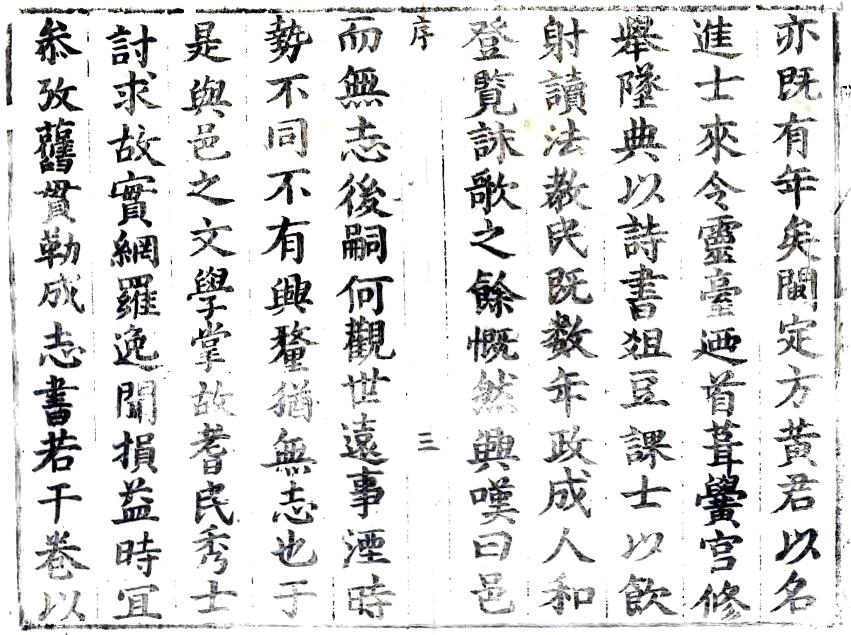 亦既有年矣閩定方黄君以名
進士來令靈臺廼首葺黌宫修
舉墜典以詩書俎豆課士以飲
射讀法教民既数年政成人和
登覧詠歌之餘慨然興嘆曰邑
序 三
而無志後嗣何觀世遠事湮時
勢不同不有興釐猶無志也于
是與邑之文學掌故耆民秀士
討求故實網羅逸聞損益時宜
叅攷舊貫勒成志書若干卷以